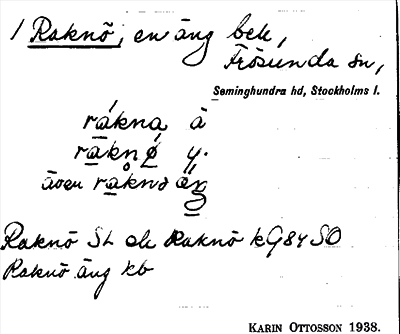 1 Raknö, en äng bel.,
Frösunda sn,
Seminghundra hd, Stockholms l.
rákna à
raknǿ y.
även råknö äng
Raknö SL ek Raknö kG84 SO
Raknö äng kb
KARIN OTTOSSON 1938.